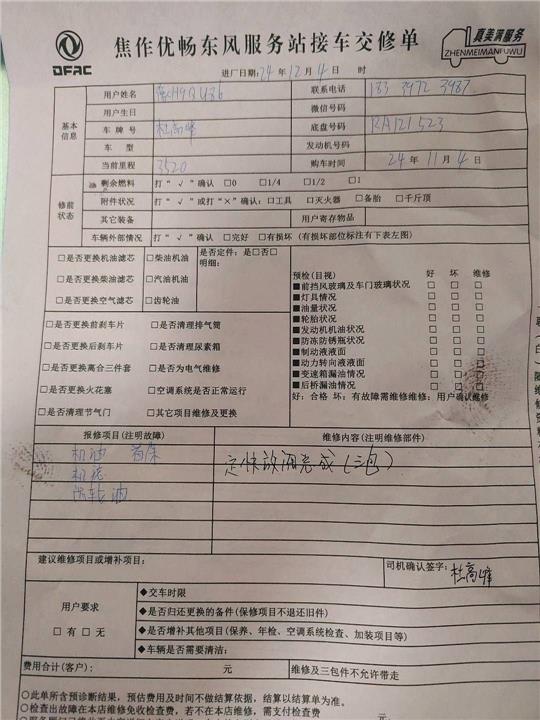 DFAC
焦作优畅东风服务站接车交修单
真美满服务
ZHENMEIMANFUWU
进厂日期:24年12月4日 时
基本信息
用户姓名
联系电话
用户生日
微信号码
车牌号 杜高峰
底盘号码 RA121523
车型
发动机号码
当前里程 3520
购车时间 24年11月4日
修前状态
剩余燃料 打“√”确认 □0 □1/4 □1/2 □1
附件状况 打“√”或打“×”确认:□工具 □灭火器 □备胎 □千斤顶
其它装备 用户寄存物品
车辆外部情况 打“√”确认 □完好 □有损坏(有损坏部位标注有下表左图)
□是否更换机油滤芯 □柴油机油 是否定件:是□否□
明细:
□是否更换柴油滤芯 □汽油机油
□是否更换空气滤芯 □齿轮油
□是否更换前刹车片 □是否清理排气筒
□是否更换后刹车片 □是否清理尿素箱
□是否更换离合三件套 □是否为电气维修
□是否更换火花塞 □空调系统是否正常运行
□是否清理节气门 □其它项目维修及更换
预检(目视) 好 坏 维修
■前挡风玻璃及车门玻璃状况 □ □ □
■灯具情况 □ □ □
■油量状况 □ □ □
■轮胎状况 □ □ □
■发动机机油状况 □ □ □
■防冻防锈瓶状况 □ □ □
■制动液液面 □ □ □
■动力转向液液面 □ □ □
■变速箱漏油情况 □ □ □
■后桥漏油情况 □ □ □
好:合格 坏:有故障需维修维修:用户确认维修
报修项目(注明故障) 维修内容(注明维修部件)
机油 首保
机滤
齿轮油
建议维修项目或增补项目:
司机确认签字:杜高峰
用户要求
□有□无
◆交车时限
◆是否归还更换的备件(保修项目不退还旧件)
◆是否增补其他项目(保养、年检、空调系统检查、加装项目等)
◆车辆是否需要清洁:
费用合计(客户): 元 维修及三包件不允许带走
○此单所含预诊断结果,预估费用及时间不做结算依据,结算以结算单为准。
○检查出故障在本店维修免收检查费,若不在本店维修,需支付检查费 元